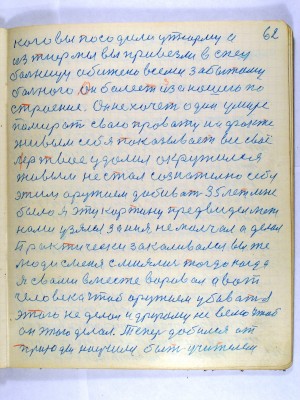 62
кого вы посодили у тюрму и
из тюрмы вы привезли в спец
болницу обижено всеми забытому
болного. Он болеет за нашего по
строение. Он не хочет один умира
живым себя показывает он своё
мертвое удалил окружился
живым не стал сознательно себя
этим оружием добивать 35 лет мне
было я эту картину предвидел
нами узялся за ния не молчал а делал
Практически закаливался вы же
люди с меня смиялис тогда когда
я с вами вместе воровал а вот
человека чтоб оружием убават я
этого не делал и другому не велю чтоб
он этого делал. Тепер добился от
природы научили быть учителем